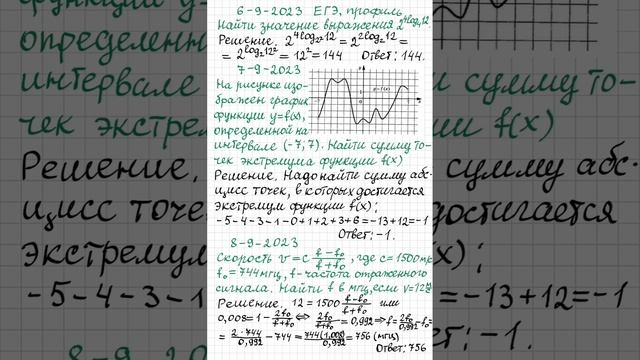 6-9-2023 ЕГЭ, профиль
Найти значение выражения 2^{4log₄12}
Решение. 2^{4log_{2²}12} = 2^{2log₂12} =
= 2^{log₂12²} = 12² = 144 Ответ: 144.
7-9-2023
На рисунке изо-
бражен график
функции y=f(x),
определенной на
интервале (-7;7). Найти сумму то-
чек экстремума функции f(x)
Решение. Надо найти сумму абс-
цисс точек, в которых достигается
экстремум функции f(x);
-5-4-3-1-0+1+2+3+6=-13+12=-1
Ответ: -1.
8-9-2023
Скорость v = c (f-f₀)/(f+f₀), где c=1500 м/с
f₀=744 мгц, f-частота отраженного
сигнала. Найти f в мгц, если v=12
Решение. 12 = 1500 (f-f₀)/(f+f₀) или
0,008 = 1 - 2f₀/(f+f₀) ⇔ 2f₀/(f+f₀) = 0,992 ⇒ f = 2f₀/0,992 - f₀ =
= 2·744/0,992 - 744 = 744(1,008)/0,992 = 756 (мгц)
Ответ: 756
функции y
определенн
интервале
чек экстре
Решение.
цисс точе
экстремум
-5-4-3-1
8-9-2023
и сумму то-
ии f(x)
сумму абс-
достигается
(x);
=-13+12=-1
Ответ: -1.